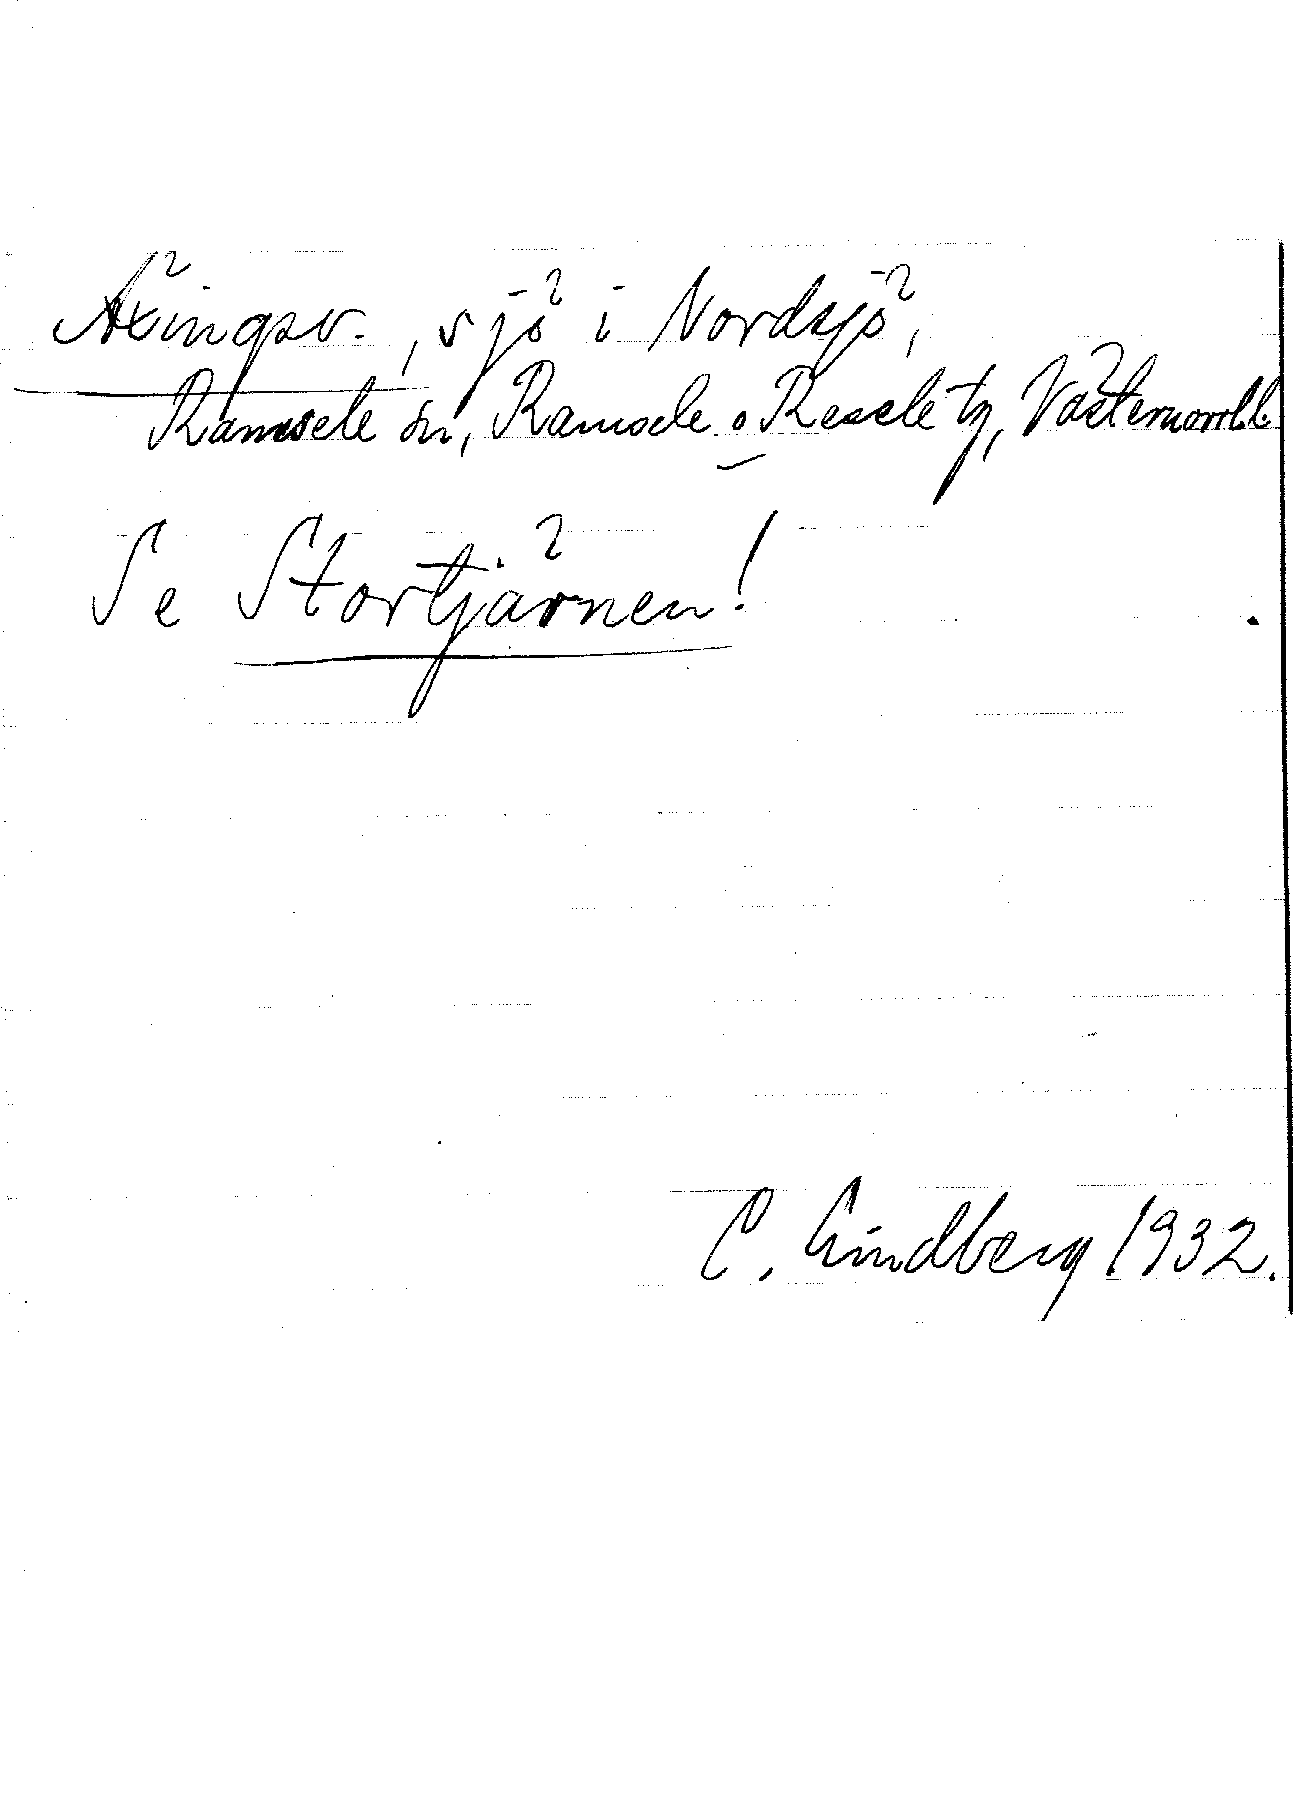 Äxingsv., sjö i Nordsjö,
Ramsele sn, Ramsele o. Resele tg, Västernorrl. l.
Se Stortjärnen!
C. Lindberg 1932.